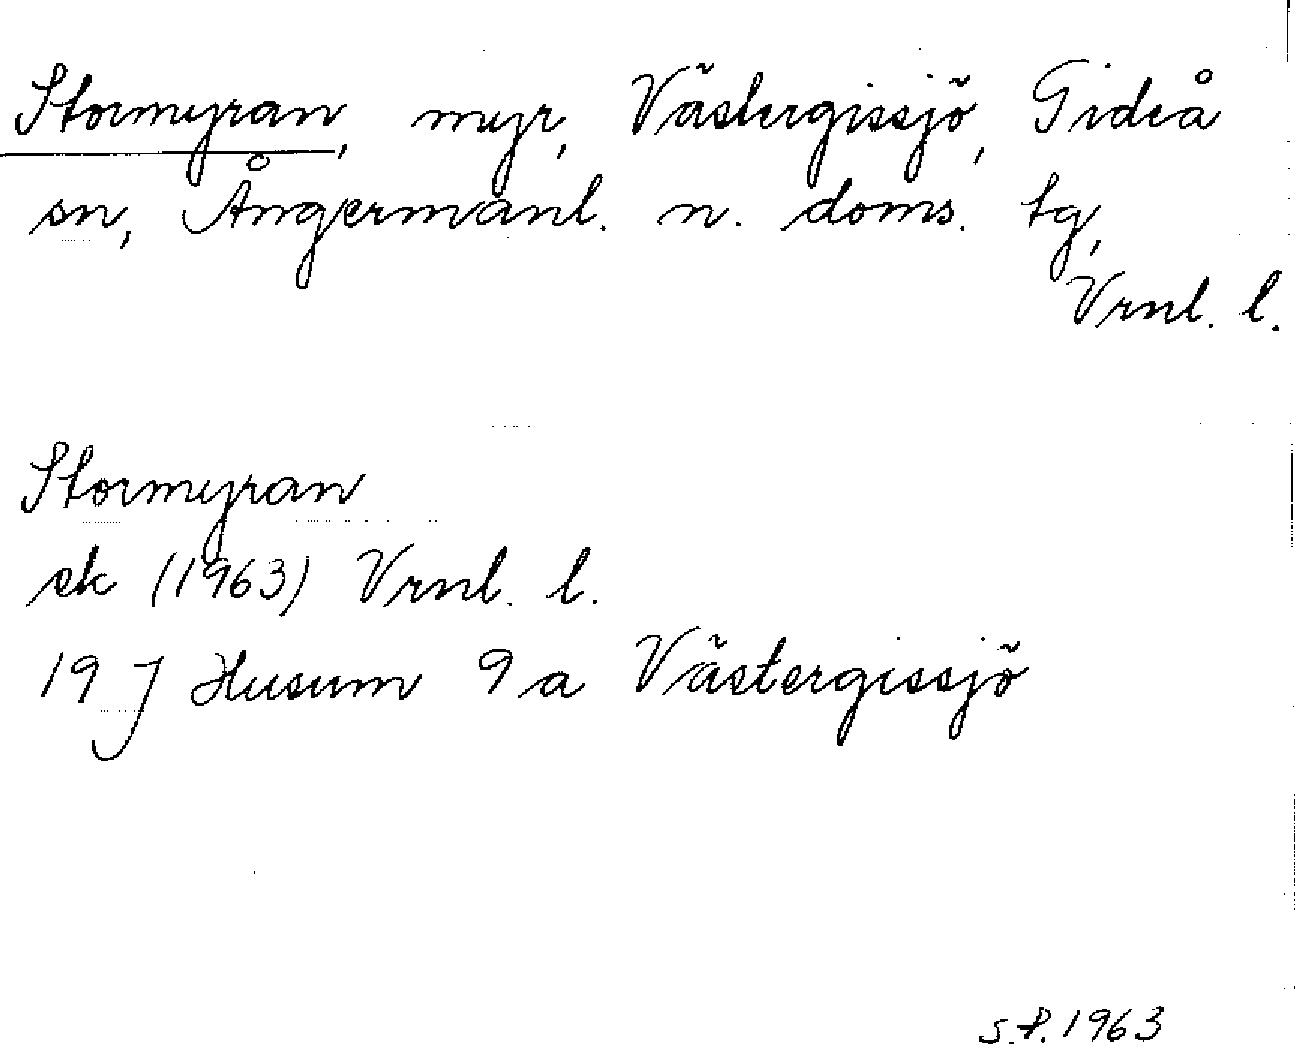 Stormyran, myr, Västergissjö, Gideå
sn, Ångermanl. n. doms. tg,
Vrnl. l.
Stormyran
ek (1963) Vrnl. l.
19 J Husum 9 a Västergissjö
S.P. 1963